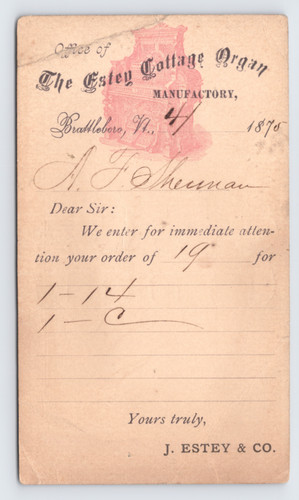 Office of
The Estey Cottage Organ
MANUFACTORY,
Brattleboro, Vt., 4 1875
A. F. Sherman
Dear Sir:
We enter for immediate atten-
tion your order of 19 for
1-14
1-C
Yours truly,
J. ESTEY & CO.